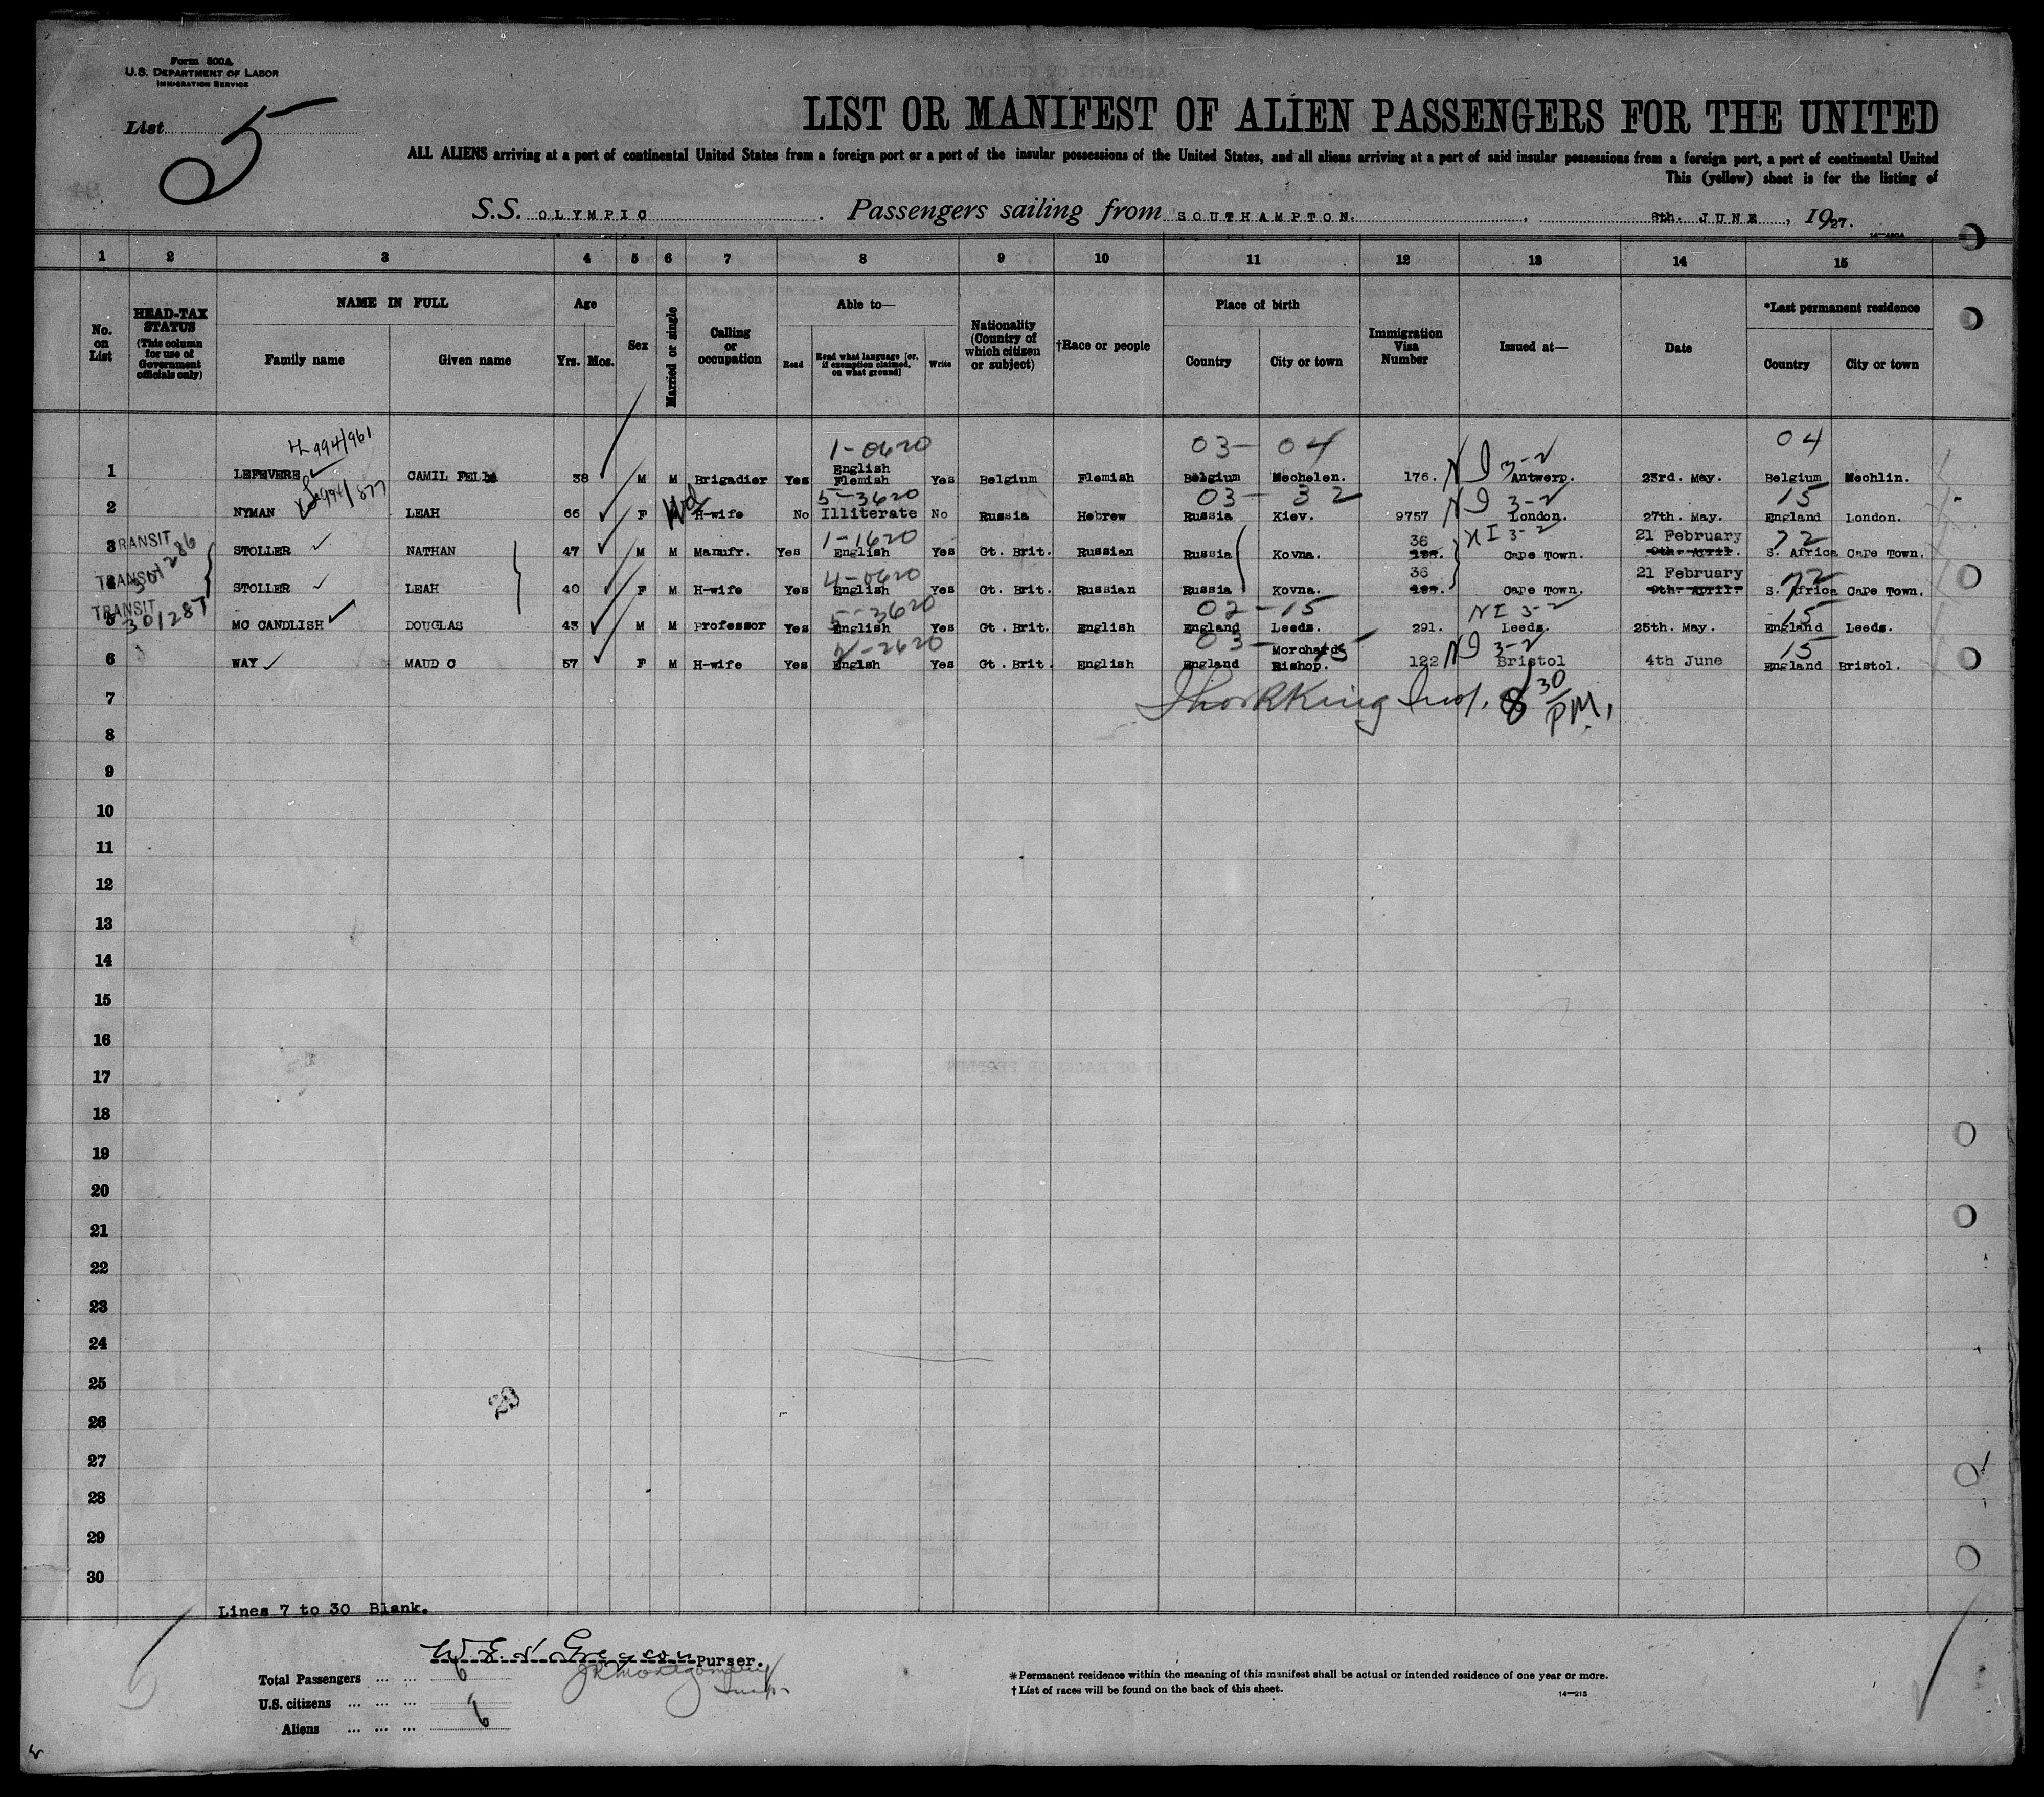 Form 500A
U.S. DEPARTMENT OF LABOR
IMMIGRATION SERVICE
List 5
LIST OR MANIFEST OF ALIEN PASSENGERS FOR THE UNITED
ALL ALIENS arriving at a port of continental United States from a foreign port or a port of the insular possessions of the United States, and all aliens arriving at a port of said insular possessions from a foreign port, a port of continental United
This (yellow) sheet is for the listing of
S.S. OLYMPIC. Passengers sailing from SOUTHAMPTON, 8th. JUNE, 1927.
1 2 3 4 5 6 7 8 9 10 11 12 13 14 15
No. on List
HEAD-TAX STATUS (This column for use of Government officials only)
NAME IN FULL
Family name Given name
Age
Yrs. Mos.
Sex
Married or single
Calling or occupation
Able to—
Read
Read what language [or, if exemption claimed, on what ground]
Write
Nationality (Country of which citizen or subject)
†Race or people
Place of birth
Country City or town
Immigration Visa Number
Issued at—
Date
*Last permanent residence
Country City or town
4-994/961 1-0620 03- 04 NI 3-2 04
1 LEFEVERE CAMIL 38 M M Brigadier Yes English Flemish Yes Belgium Flemish Belgium Mechelen. 176. Antwerp. 23rd. May. Belgium Mechlin.
5-3620 03- 32 NI 3-2 15
2 NYMAN LEAH 66 F Wd H-wife No Illiterate No Russia Hebrew Russia Kiev. 9757 London. 27th. May. England London.
TRANSIT 1-1620 36 NI 3-2 21 February 72
3 STOLLER NATHAN 47 M M Manufr. Yes English Yes Gt. Brit. Russian Russia Kovna. Cape Town. 9th. April. S. Africa Cape Town.
TRANSIT 301286 4-0620 36 21 February 72
4 STOLLER LEAH 40 F M H-wife Yes English Yes Gt. Brit. Russian Russia Kovna. Cape Town. 9th. April. S. Africa Cape Town.
TRANSIT 301287 5-3620 02-15 NI 3-2 15
5 MC CANDLISH DOUGLAS 43 M M Professor Yes English Yes Gt. Brit. English England Leeds. 291. Leeds. 25th. May. England Leeds.
2-2620 03- 15 NI 3-2 15
6 WAY MAUD C 57 F M H-wife Yes English Yes Gt. Brit. English England Morchard Bishop. 122 Bristol 4th June England Bristol.
7 King 8 30 PM.
8
9
10
11
12
13
14
15
16
17
18
19
20
21
22
23
24
25
26
27
28
29
30
Lines 7 to 30 Blank.
Purser.
Total Passengers ... ... 6
U.S. citizens ... ... ...
Aliens ... ... ... 6
*Permanent residence within the meaning of this manifest shall be actual or intended residence of one year or more.
†List of races will be found on the back of this sheet.
14—213